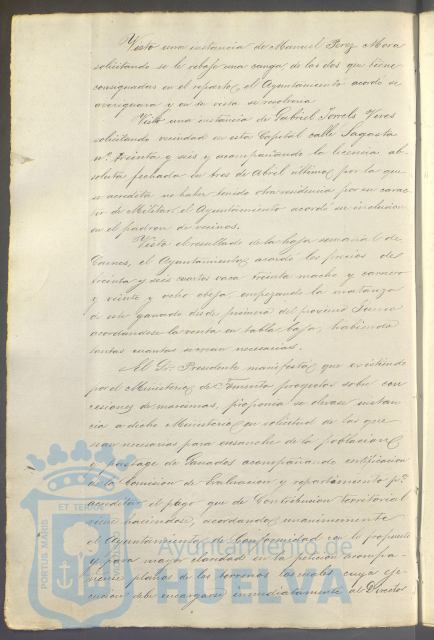 Visto una instancia de Manuel Perez Mora
solicitando se le rebaje una carga, de las dos que tiene
consignadas en el reparto, el Ayuntamiento acordó se
averiguara y en su vista se resolveria
Visto una instancia de Gabriel Yvres
solicitando vecindad en esta Capital calle Sagasta
nº. treinta y seis y acompañando la licencia ab-
soluta fechada en tres de Abril último, por la que
se acredita no haber tenido otra residencia por su carac-
ter de Militar, el Ayuntamiento acordó su inclusion
en el padron de vecinos.
Visto el resultado de la baja semanal de
Carnes, el Ayuntamiento, acordó los precios de
treinta y seis cuartos vaca treinta macho y carnero
y veinte y ocho obeja, empezando la matanza
de este ganado desde primero del procsimo Junio
acordandose la venta en tabla baja, habiendo
tantas cuantas se crean necesarias.
Al Sr. Presidente manifestó que existiendo
por el Ministerio de Fomento proyectos sobre con-
cesiones de marismas, proponia se elevase instan-
cia a dicho Ministerio en solicitud de las que
sean necesarias para ensanche de la poblacion
y pastage de Ganados acompañando certificacion
de la Comision de Evaluacion y repartimiento pª.
acreditar el pago que de Contribucion territorial
viene haciendose, acordando unanimemente
el Ayuntamiento de Conformidad con lo propuesto
y para mayor claridad en la peticion acompa-
ñense planos de los terrenos cuya eje-
cucion debe encargarse inmediatamente al Director
PORTUS MARIS
ET TERRAE
Ayuntamiento de
HUELVA